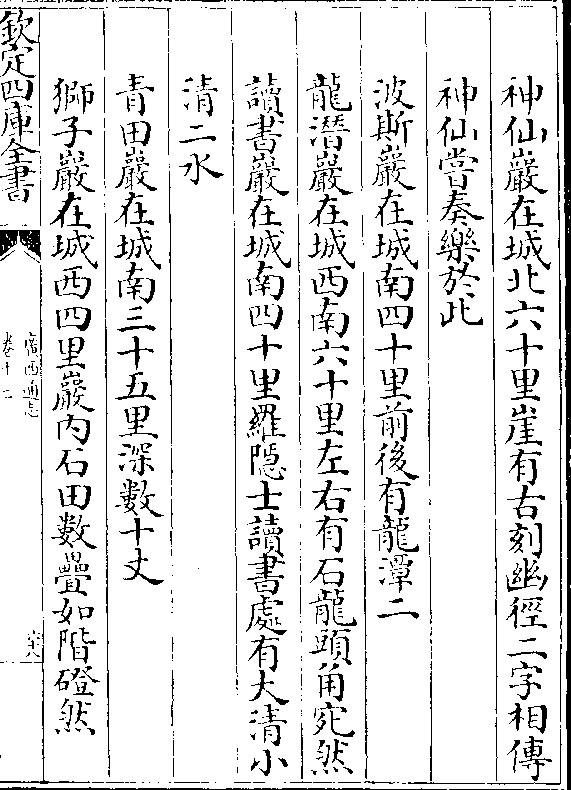 神仙巖在城北六十里崖有古刻幽徑二字相傳
神仙嘗奏樂於此
波斯巖在城南四十里前後有龍潭二
龍潛巖在城西南六十里左右有石龍頭角宛然
讀書巖在城南四十里羅隱士讀書處有大清小
清二水
青田巖在城南三十五里深數十丈
獅子巖在城西四里巖内石田數疊如階磴然
欽定四庫全書
廣西通志